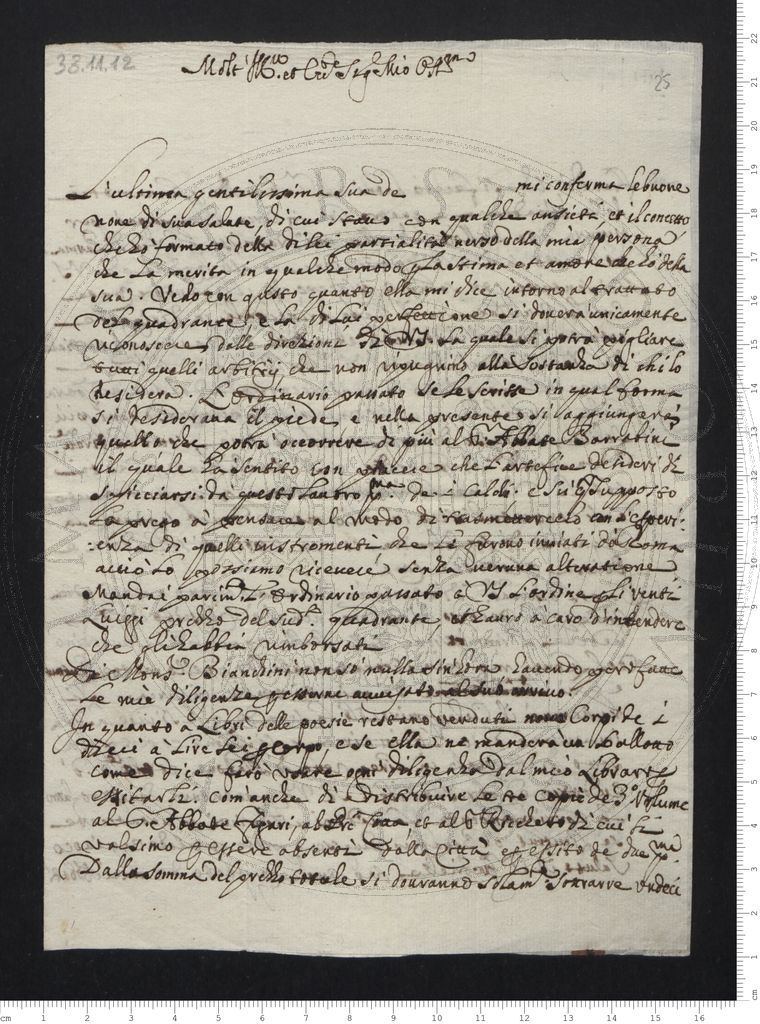 33.11.12
25
Molt' Ill.re et Sig.e Mio
L'ultima gentilissima sua de mi conferma le buone
nove di sua salute, di cui stavo con qualche ansietà et il concetto
che ho formato della di lei partialità verso della mia persona
che La merita in qualche modo La stima et amore che hò della
sua. Vedo con gusto quanto ella mi dice intorno al trattato
del quadrante, e La di Lui perfettione si doverà unicamente
riconoscere dalle direzioni di VS. La quale si potrà pigliare
tutti quelli arbitrij che non ripugnino alla sostanza di chi lo
desidera. L'ordinario passato se Le scrisse in qual forma
si desiderava il piede e nella presente si aggiungerà
quello che potrà occorrere di più al S. Abbate Barrabini
il quale ha sentito con piacere che L'artefice desideri di
spicciarsi da questo Lavoro de i Caldi. e
La prego à pensare al modo di trasmettercelo con l'esperi-
enza di quelli instromenti che Le furono inviati da Roma
acciò Lo possiamo ricevere senza veruna alteratione
Mandai L'ordinario passato à VS L'ordine venti
Luiggi prezzo del sud.o quadrante, et haurò à caro d'intendere
che gli habbia rimborsati
Di Mons. Bianchini non sò nulla sin hora havendo
Le mie diligenze esserne avvisato al suo arrivo.
In quanto a Libri delle poesie restano venduti Corpi de i
dieci a Lire sei corpo, e se ella ne manderà un ballotto
come dice farò usare ogni diligenza dal mio Libraro
esitarli. Com'anche di distribuire Le tre copie de 3.o Volume
al S. Abbate et al S. di cui li
essere absenti dalla Città de due
Dalla somma del prezzo totale si dovranno solam.e sottrarre undeci